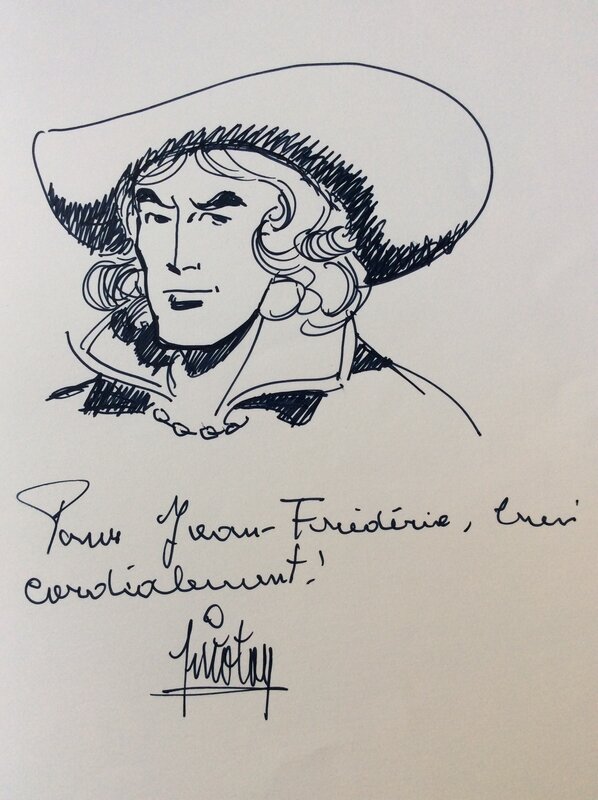 Pour Jean-Frédéric, très
cordialement!
Juvotay